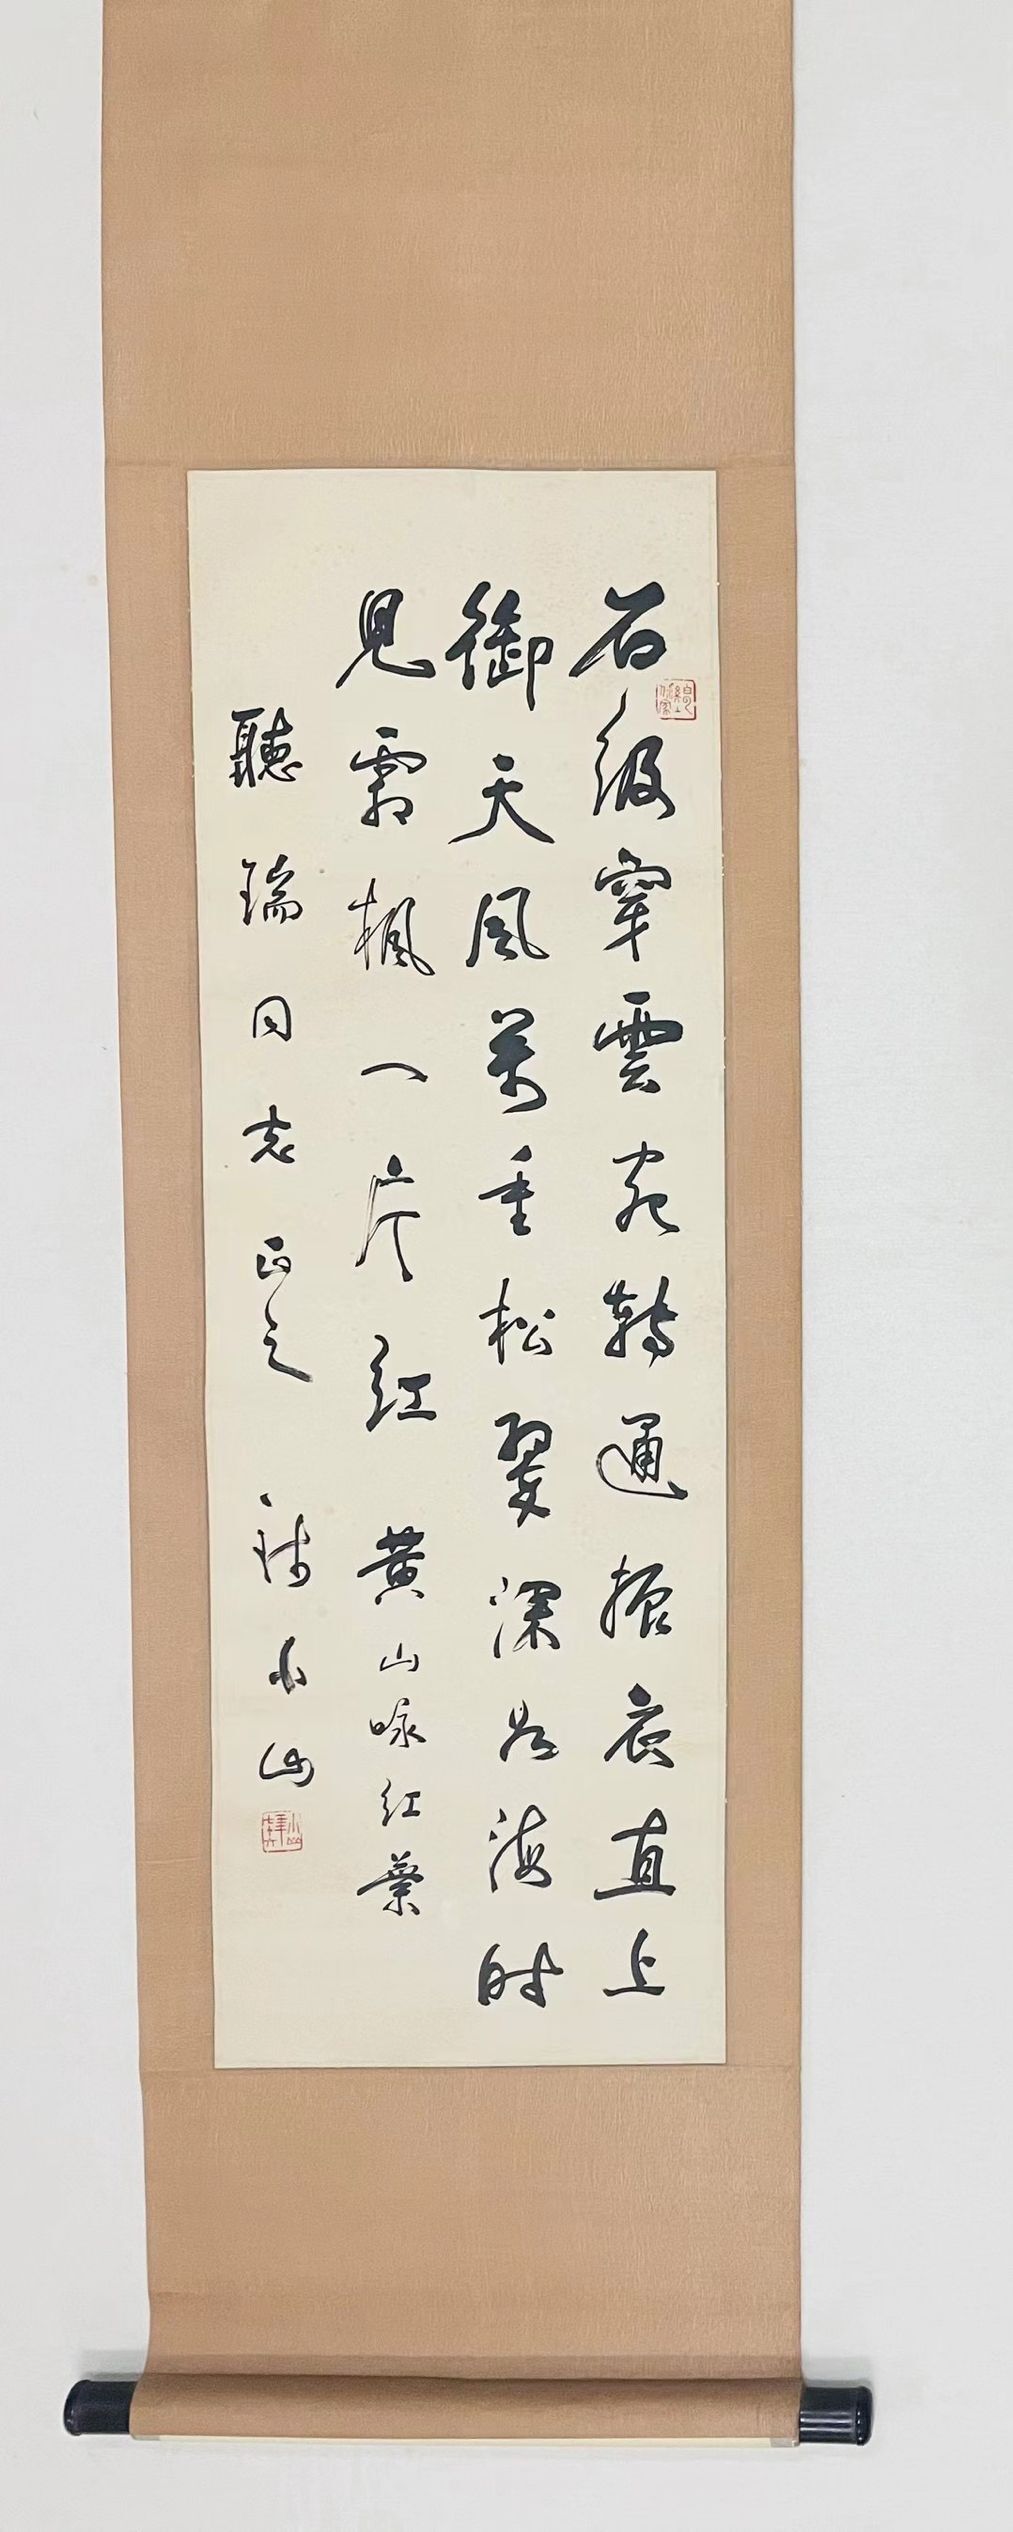 石級穿雲宛轉通振衣直上
御天風萬重松翠深如海時
見霜楓一片紅 黄山咏紅葉
聽瑞同志正之 錢小山